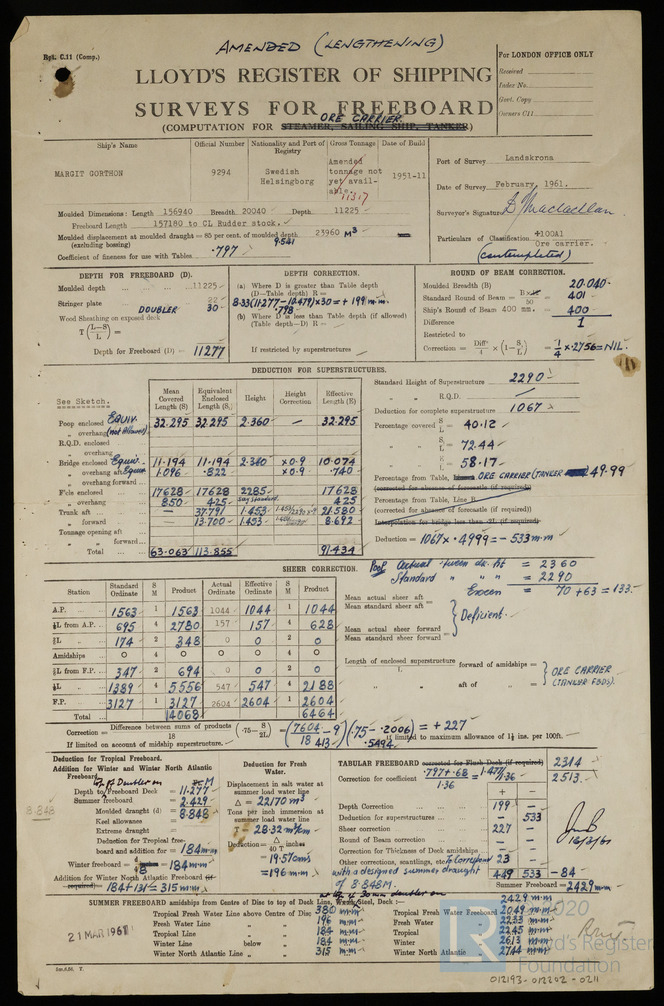 AMENDED (LENGTHENING)
Rpt. C.11 (Comp.)
LLOYD'S REGISTER OF SHIPPING
SURVEYS FOR FREEBOARD
ORE CARRIER
(COMPUTATION FOR STEAMER, SAILING SHIP, TANKER)
For LONDON OFFICE ONLY
Received
Index No.
Govt. Copy
Owners C11
Ship's Name
Official Number
Nationality and Port of Registry
Gross Tonnage
Date of Build
MARGIT GORTHON
9294
Swedish
Helsingborg
Amended tonnage not yet available.
11317
1951-11
Port of Survey Landskrona
Date of Survey February 1961.
Surveyor's Signature D Maclachlan
Particulars of Classification +100A1
Ore carrier.
(contemplated)
Moulded Dimensions: Length 156940 Breadth 20040 Depth 11225
Freeboard Length 157180 to CL Rudder stock.
Moulded displacement at moulded draught = 85 per cent. of moulded depth 9.541 23960 M³
(excluding bossing)
Coefficient of fineness for use with Tables .797
DEPTH FOR FREEBOARD (D).
Moulded depth 11225
Stringer plate 22
DOUBLER 30
Wood Sheathing on exposed deck
T (L-S/L) =
Depth for Freeboard (D) = 11277
DEPTH CORRECTION.
(a) Where D is greater than Table depth
(D—Table depth) R =
8.33(11277-10479)×30 = +199 m.m.
.798
(b) Where D is less than Table depth (if allowed)
(Table depth—D) R =
If restricted by superstructures
ROUND OF BEAM CORRECTION.
Moulded Breadth (B) 20.040
Standard Round of Beam = B×12/50 = 401
Ship's Round of Beam 400 mm. = 400
Difference 1
Restricted to
Correction = Diff/4 × (1-S/L) = 1/4 × .2756 = NIL
DEDUCTION FOR SUPERSTRUCTURES.
See Sketch.
Mean Covered Length (S)
Equivalent Enclosed Length (S₁)
Height
Height Correction
Effective Length (E)
Poop enclosed EQUIV. 32.295 32.295 2.360 — 32.295
" overhang (not Allowed)
R.Q.D. enclosed
" overhang
Bridge enclosed Equiv. 11.194 11.194 2.360 ×0.9 10.074
" overhang aft Equiv. 1.096 .822 " ×0.9 .740
" overhang forward
F'cle enclosed 17628 17628 2285 17628
" overhang 850 425 say standard 425
Trunk aft 37.791 1.453 21.580
" forward — 13.700 1.453 8.692
Tonnage opening aft
" " forward
Total 63.063 113.855 91.434
Standard Height of Superstructure 2290
" " R.Q.D. —
Deduction for complete superstructure 1067
Percentage covered S/L = 40.12
" S₁/L = 72.44
" E/L = 58.17
Percentage from Table, ORE CARRIER (TANKER 49.99
(corrected for absence of forecastle (if required))
Percentage from Table, Line B
(corrected for absence of forecastle (if required))
Interpolation for bridge less than .2L (if required)
Deduction = 1067 × .4999 = - 533 m.m
SHEER CORRECTION.
Station
Standard Ordinate
S M
Product
Actual Ordinate
Effective Ordinate
S M
Product
A.P. 1563 1 1563 1044 1044 1 1044
⅙L from A.P. 695 4 2780 157 157 4 628
⅓L " 174 2 348 0 0 2 0
Amidships 0 4 0 0 0 4 0
⅓L from F.P. 347 2 694 0 0 2 0
⅙L " 1389 4 5556 547 547 4 2188
F.P. 3127 1 3127 2604 2604 1 2604
Total 14068 6464
Poop Actual 'tween dk. ht = 2360
Standard " " " = 2290
Excess = 70 + 63 = 133
Mean actual sheer aft
Mean standard sheer aft =
Mean actual sheer forward
Mean standard sheer forward =
Deficient.
Length of enclosed superstructure forward of amidships =
L
" " aft of " =
ORE CARRIER
(TANKER FBDS).
Correction = Difference between sums of products/18 (.75 - S/2L) = (7604/18 - 9)(.75 - .2006) = + 227
413 .5494
If limited on account of midship superstructure.
If limited to maximum allowance of 1½ ins. per 100ft.
Deduction for Tropical Freeboard.
Addition for Winter and Winter North Atlantic Freeboard.
Depth to Freeboard Deck = 11.277
Summer freeboard = 2.429
Moulded draught (d) = 8.848
Keel allowance
Extreme draught =
Deduction for Tropical freeboard and addition for = 184 m.m
Winter freeboard = = 184 m.m
Addition for Winter North Atlantic Freeboard (if required) =
184 + 131 = 315 m.m
8.848
Deduction for Fresh Water.
Displacement in salt water at summer load water line
Δ = 22170 m³
Tons per inch immersion at summer load water line
T = 28.32 m³/cm
Deduction = Δ/40 T
= 19.57 cm
= 196 m.m
TABULAR FREEBOARD corrected for Flush Deck (if required) 2314
Correction for coefficient .797+.68/1.36 = 1.477/1.36 2513
+ —
Depth Correction 199 —
Deduction for superstructures — 533
Sheer correction 227 —
Round of Beam correction — —
Correction for Thickness of Deck amidships — —
Other corrections, scantlings, etc. To Correspond 23 —
with a designed summer draught
of 8.848M.
449 533 -84
Summer Freeboard = 2429 m.m
16/3/61
SUMMER FREEBOARD amidships from Centre of Disc to top of Deck Line, Wood, Steel, Deck:—
2429 m.m
Tropical Fresh Water Line above Centre of Disc 380 m.m
Fresh Water Line " " 196 m.m
Tropical Line " " 184 m.m
Winter Line below " 184 m.m
Winter North Atlantic Line " " 315 m.m
Tropical Fresh Water Freeboard 2049 m.m
Fresh Water " 2233 m.m
Tropical " 2245 m.m
Winter " 2613 m.m
Winter North Atlantic " 2744 m.m
21 MAR 1961
LR
2020
Lloyd's Register
Foundation
012193-012202-0211